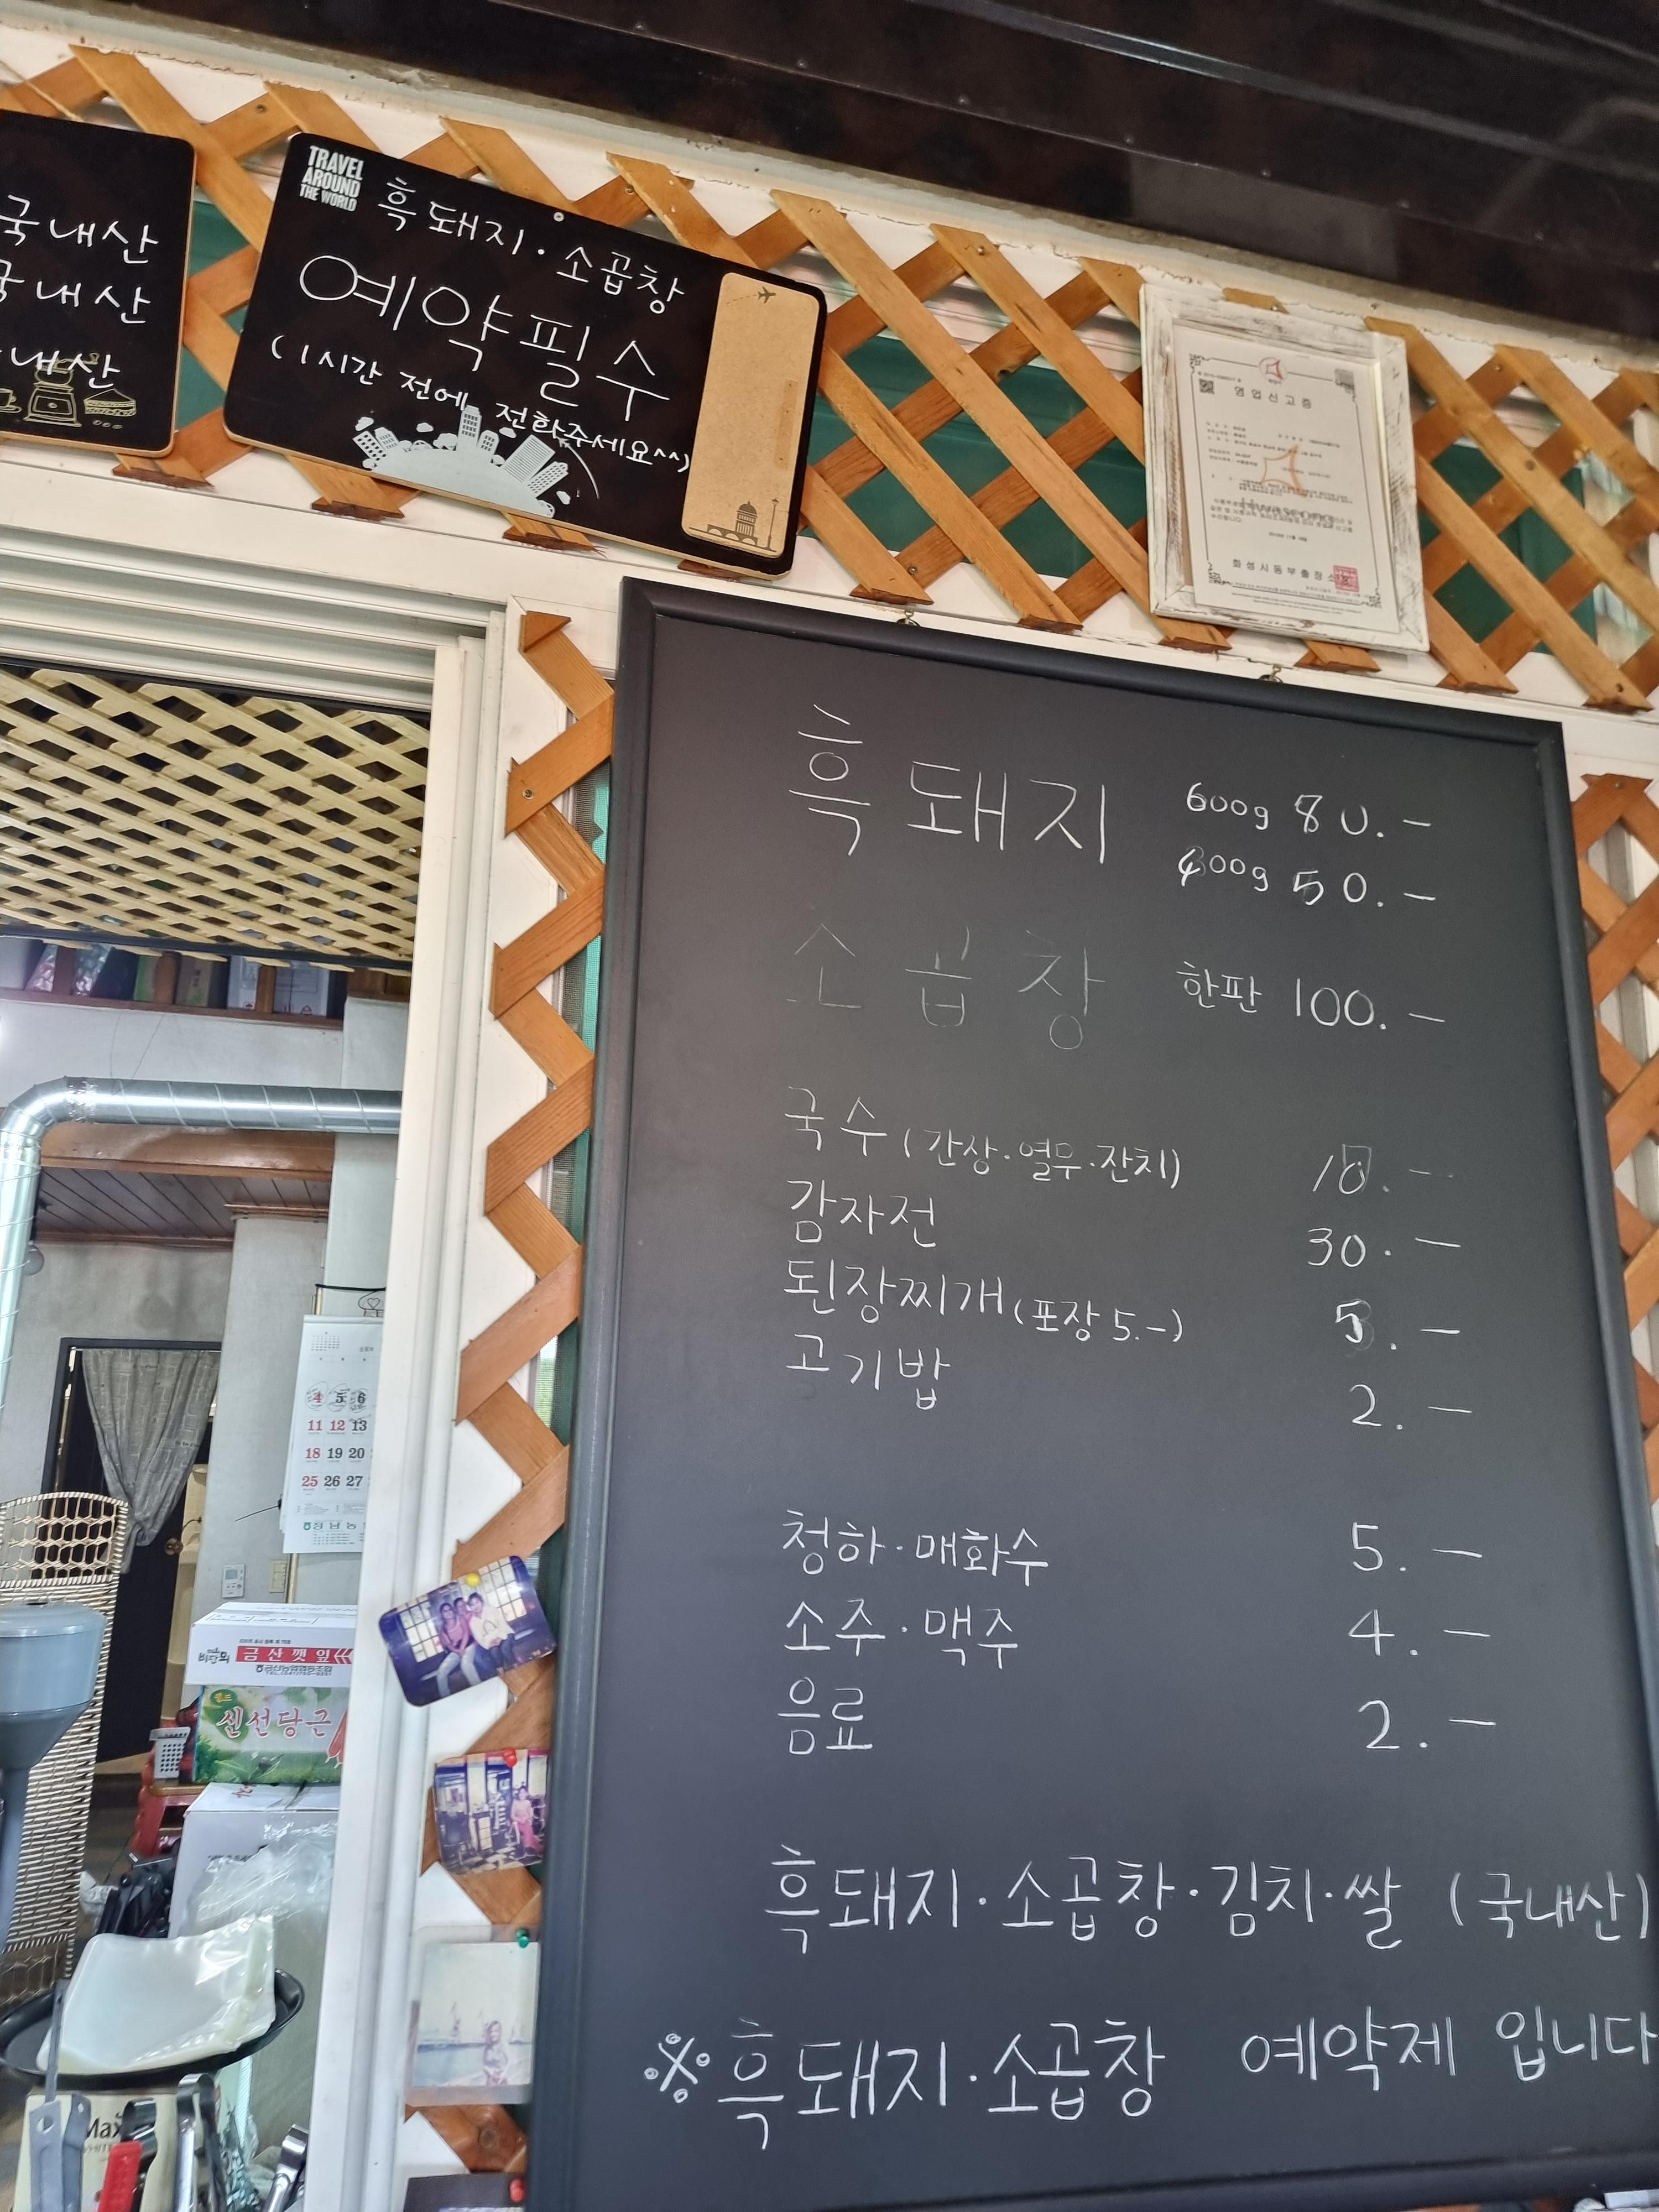 국내산
국내산
내산
TRAVEL
AROUND
THE WORLD
흑돼지·소곱창
예약필수
(1시간 전에 전화주세요^^)
영업신고증
화성시동부출장소
흑돼지 600g 80.-
400g 50.-
소곱창 한판 100.-
국수(간장·열무·잔치) 10.-
감자전 30.-
된장찌개(포장 5.-) 5.-
고기밥 2.-
청하·매화수 5.-
소주·맥주 4.-
음료 2.-
흑돼지·소곱창·김치·쌀 (국내산)
※흑돼지·소곱창 예약제 입니다
4 5 6
11 12 13
18 19 20
25 26 27
금산깻잎
신선당근
Max